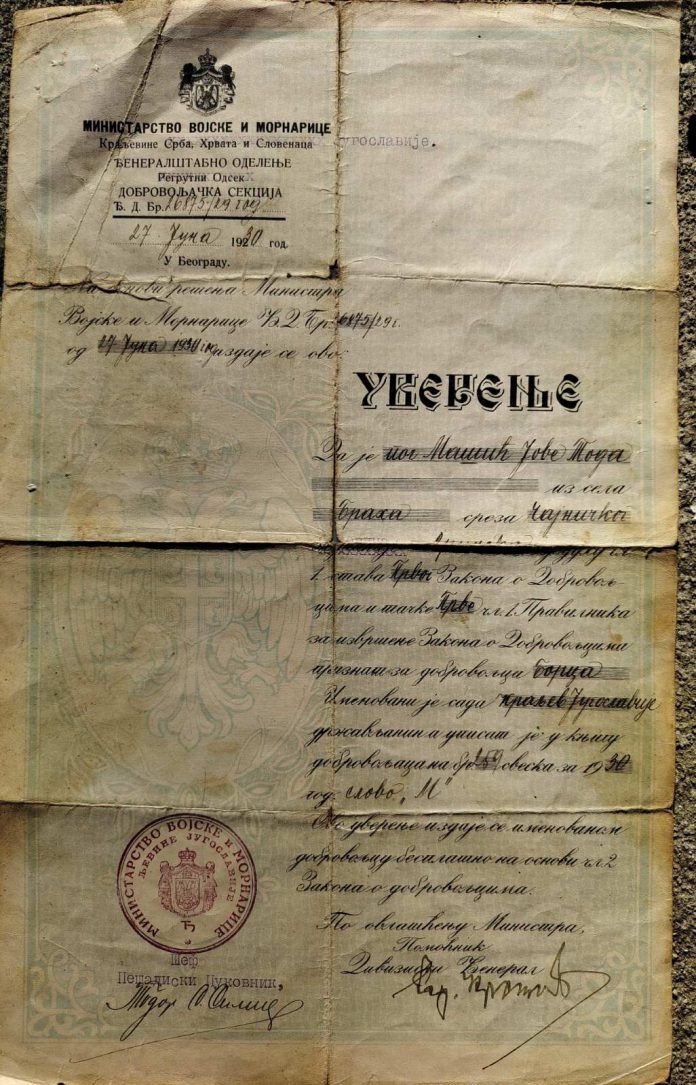 МИНИСТАРСТВО ВОЈСКЕ И МОРНАРИЦЕ
Краљевине Срба, Хрвата и Словенаца
југославије.
ЂЕНЕРАЛШТАБНО ОДЕЛЕЊЕ
Регрутни Одсек
ДОБРОВОЉАЧКА СЕКЦИЈА
Ђ. Д. Бр. 26875/29 год
27. Јуна 1930 год.
У Београду.
На основи решена Министра
Војске и Морнарице Ђ.Д. Бр. 26875/29 г.
од 27 Јуна 1930 г. издаје се ово:
УВЕРЕЊЕ
Да је пог Машић Јове Тода
из села
Браха среза Чајничког
1. става Првог Закона о Доброво-
цима и тачке Прве чл. 1. Правилника
за извршење Закона о Добровољцима
признат за добровољца борца
Именовани је сада Краљев Југославије
држављанин а уписат је у књигу
добровољаца на бр. 259 свеска за 1930
год. слово „М"
Ово уверење издаје се именованом
добровољцу бесплатно на основи чл. 2
Закона о добровољцима.
МИНИСТАРСТВО ВОЈСКЕ И МОРНАРИЦЕ
ЉЕВИНЕ ЈУГОСЛАВИЈЕ
Ђ
По овлашћењу Министра,
Помоћник
Дивизиски Ђенерал
Шеф
Пешадиски Пуковник,
Тодор